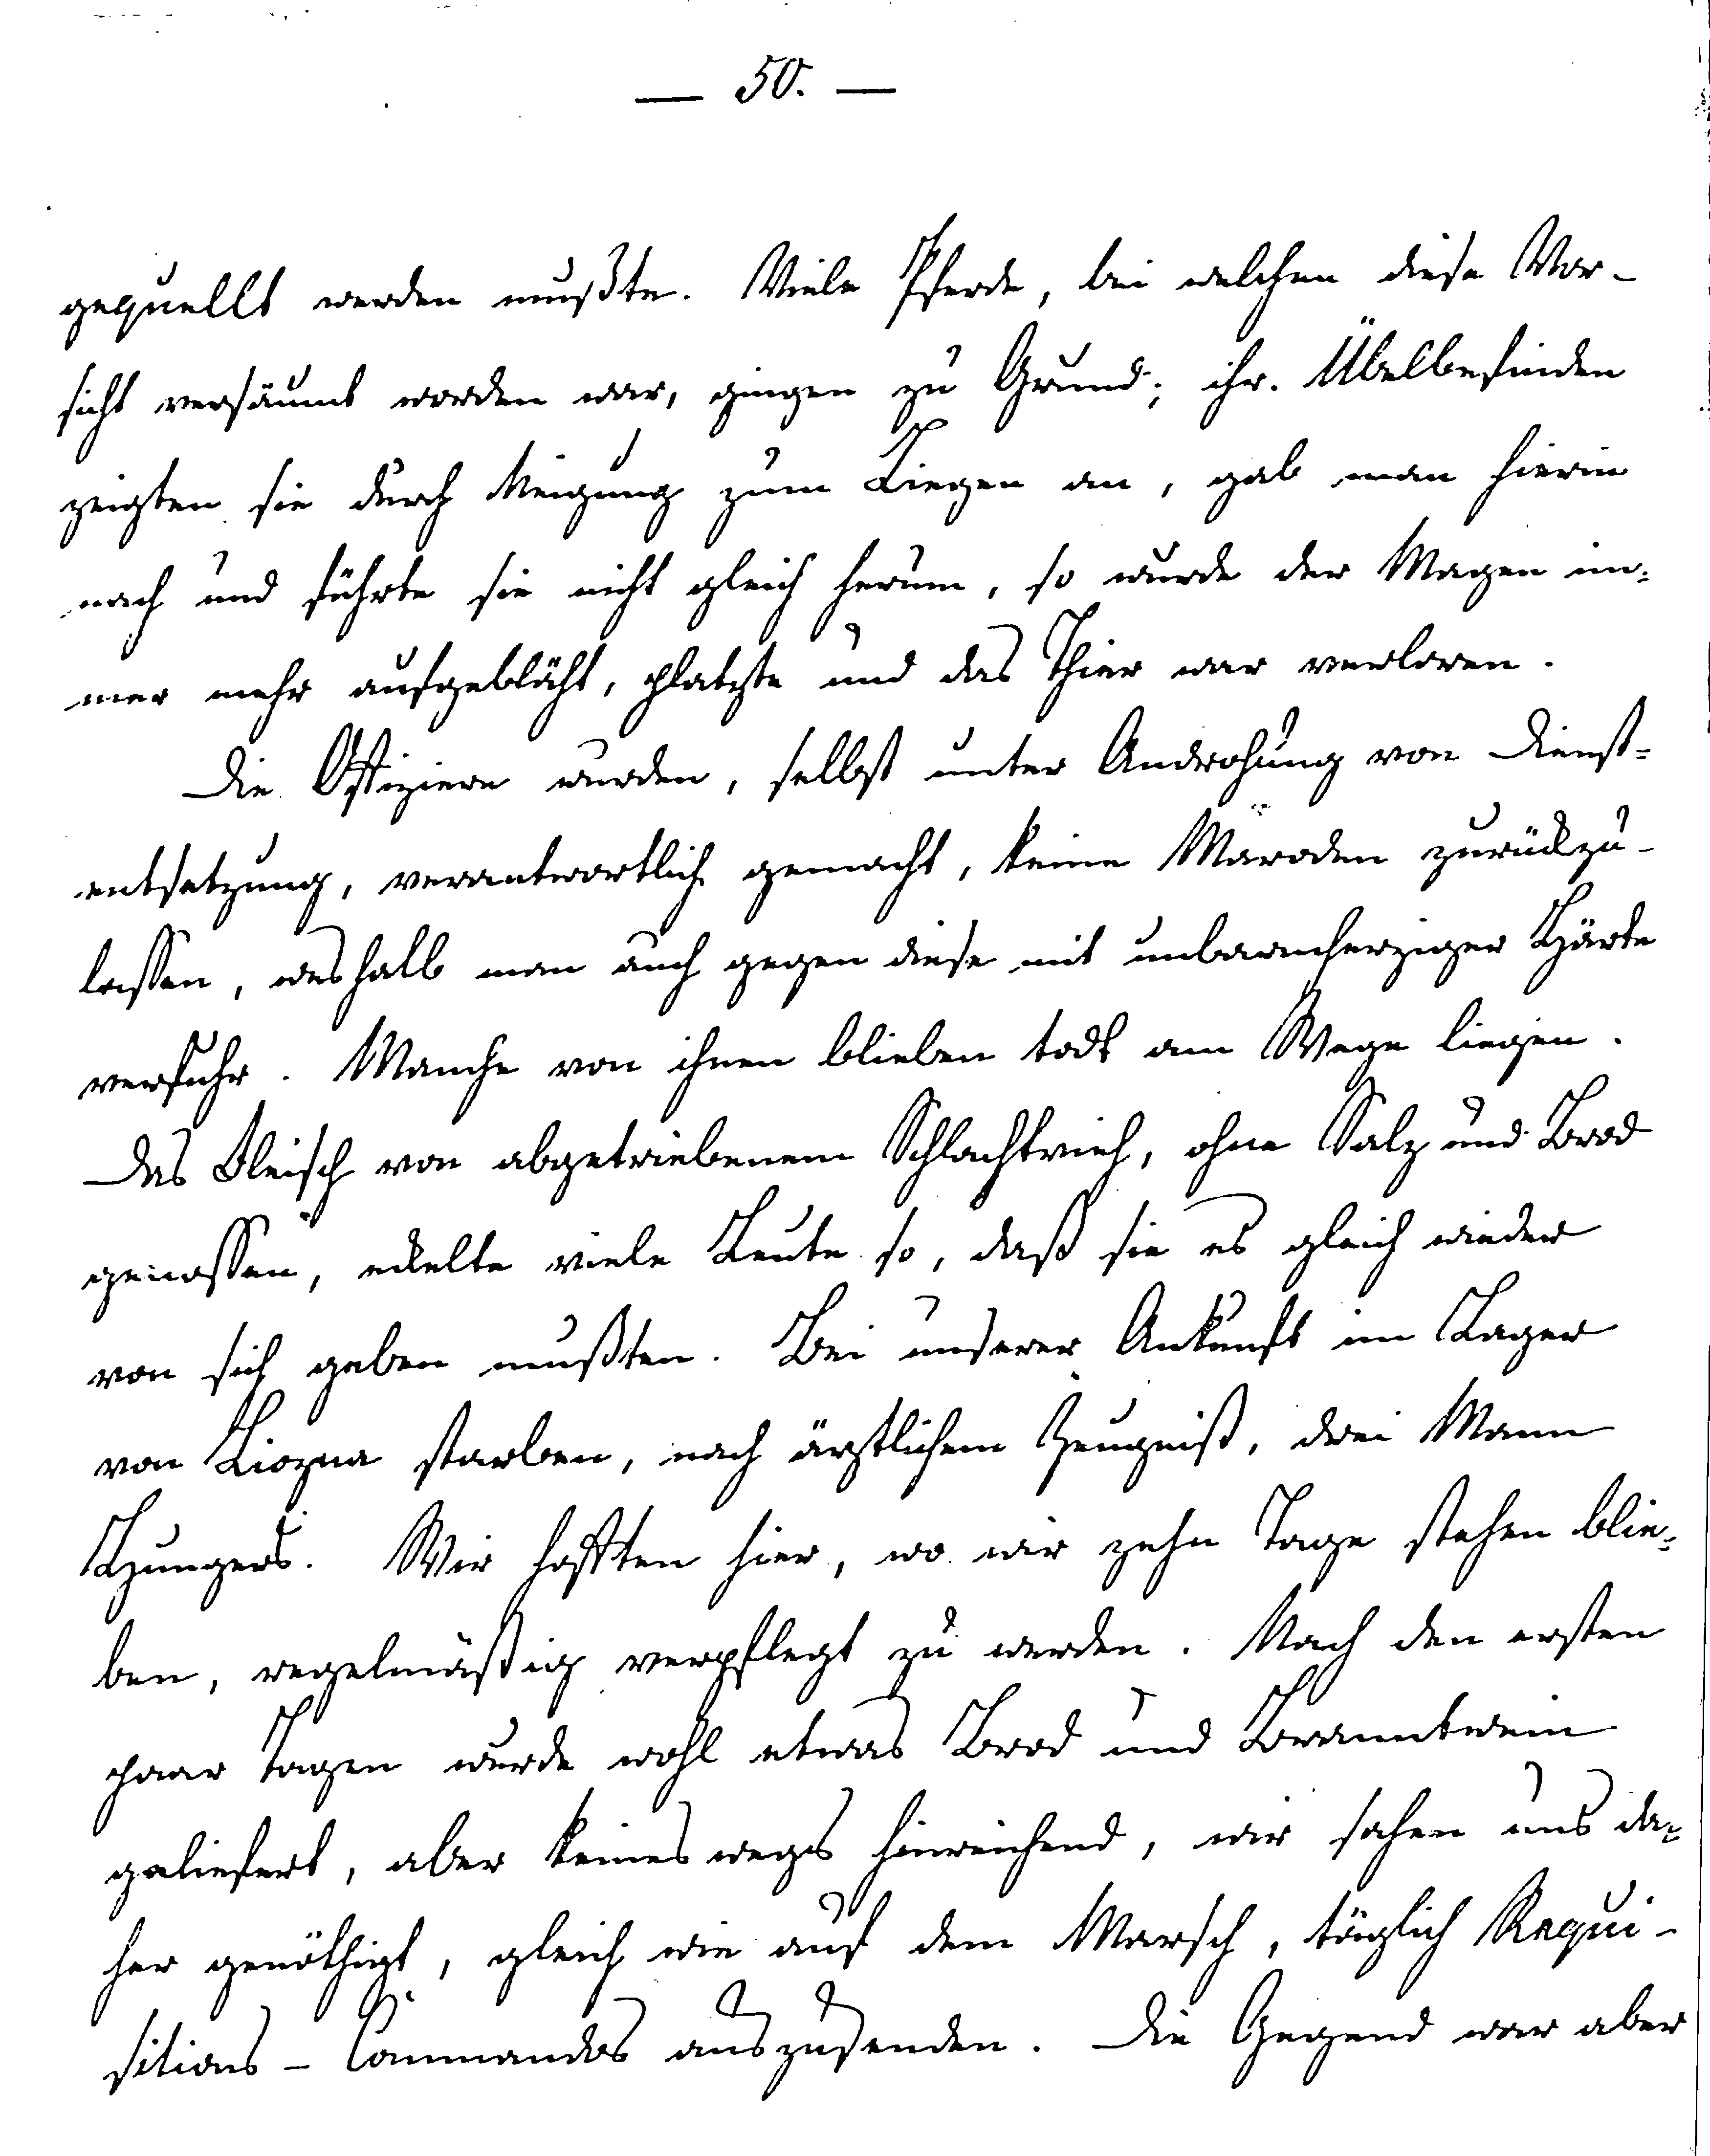 — 50. —
gequellt werden mußte. Viele Pferde, bei welchen diese Vor-
sicht versäumt worden war, gingen zu Grund; ihr Übelbefinden
zeigten sie durch Neigung zum Liegen an, gab man hierin
nach und führte sie nicht gleich herum, so wurde der Magen im-
mer mehr aufgebläht, platzte und das Thier war verloren.
Die Offiziere wurden, selbst unter Androhung von Dienst-
entsetzung, verantwortlich gemacht, keine Maroden zurückzu-
lassen, weshalb man auch gegen diese mit unbarmherziger Härte
verfuhr. Manche von ihnen blieben todt am Wege liegen.
Das Fleisch von abgetriebenem Schlachtvieh, ohne Salz und Brod
genossen, eckelte viele Leute so, daß sie es gleich wieder
von sich geben mußten. Bei unserer Ankunft im Lager
von Liozna starben, nach ärztlichem Zeugniß, drei Mann
Hungers. Wir hofften hier, wo wir zehn Tage stehen blie-
ben, regelmäßig verpflegt zu werden. Nach den ersten
paar Tagen wurde wohl etwas Brod und Branntwein
geliefert, aber keineswegs hinreichend, wir sahen uns da-
her genöthigt, gleich wie auf dem Marsch, täglich Requi-
sitions-Commandos auszusenden. Die Gegend war aber